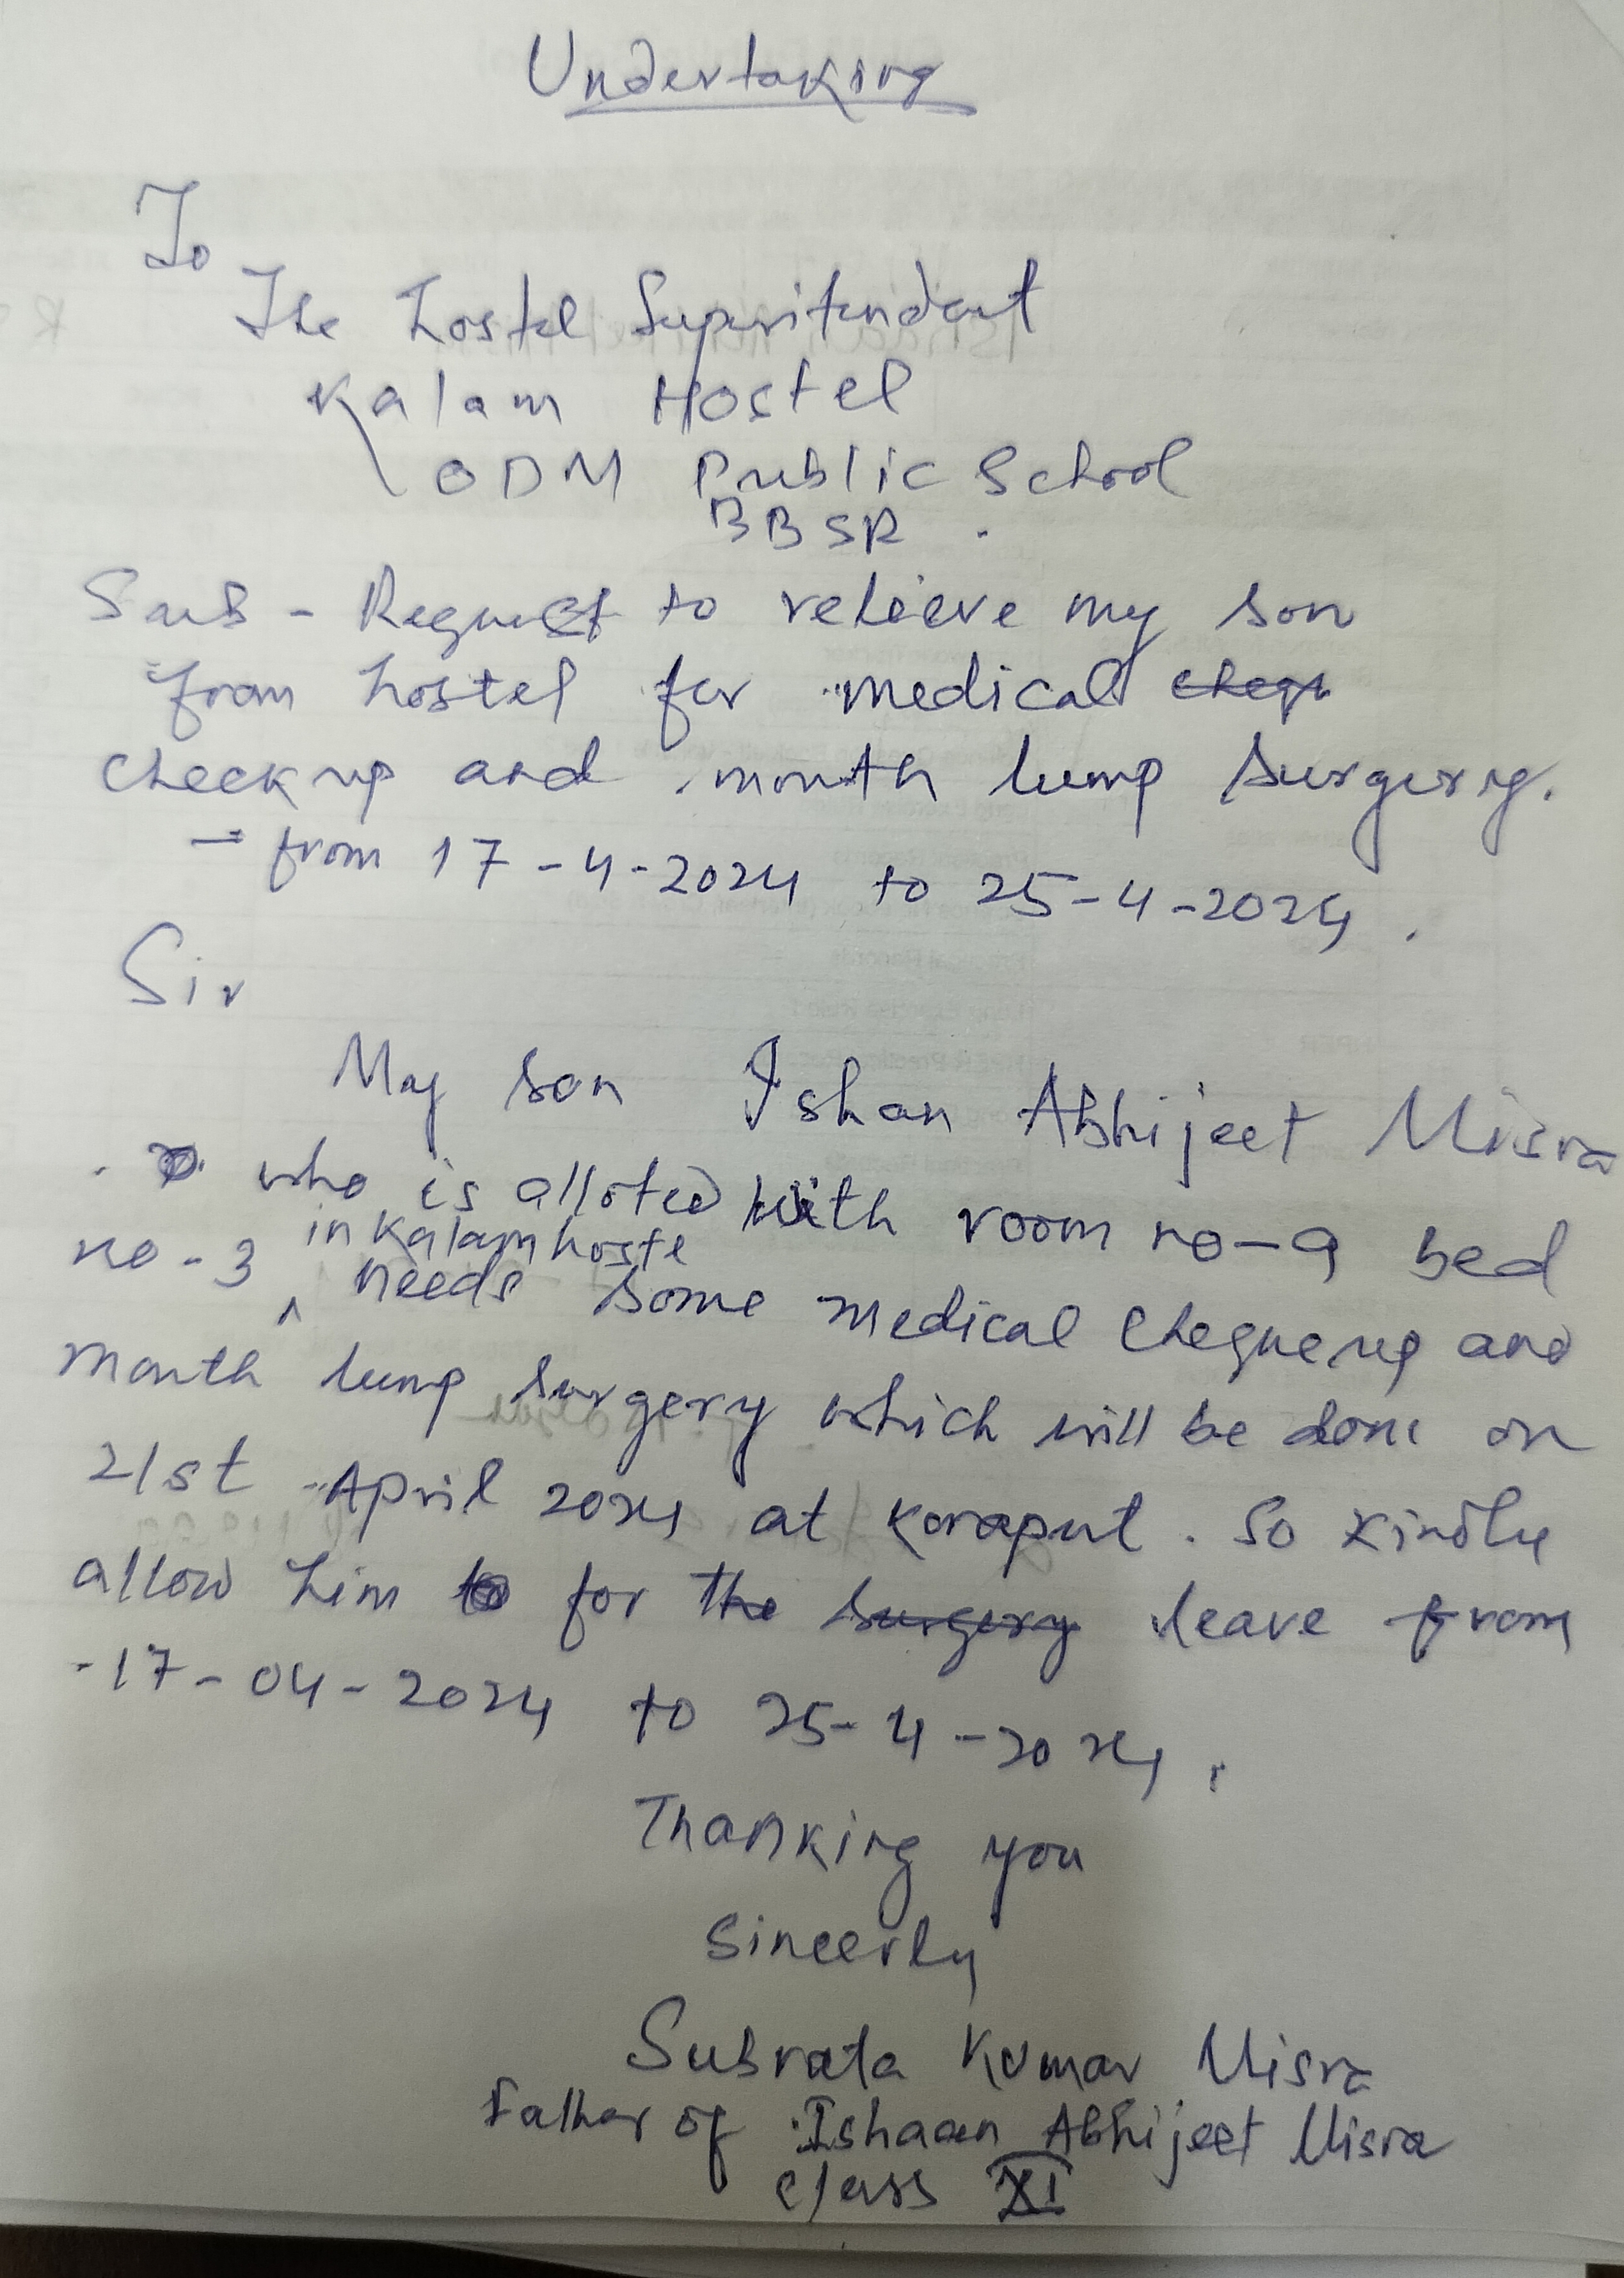 Undertaking
To
The hostel Superitendent
Kalam Hostel
ODM Public School
BBSR.
Sub - Request to relieve my son
from hostel for medical
checkup and month lump surgery.
- from 17-4-2024 to 25-4-2024.
Sir
My son Ishan Abhijeet Misra
who is alloted with room no-9 bed
no-3 in Kalam hoste needs some medical chequeup and
month lump surgery which will be done on
21st April 2024 at Koraput. So kindly
allow him for leave from
17-04-2024 to 25-4-2024.
Thanking you
Sincerly
Subrata Kumar Misra
Father of Ishaan Abhijeet Misra
Class XI